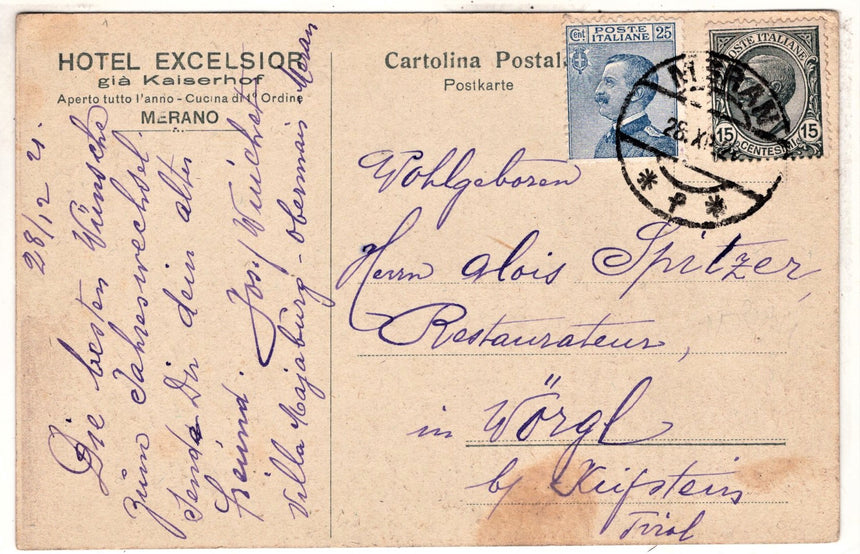 HOTEL EXCELSIOR
già Kaiserhof
Aperto tutto l'anno - Cucina di 1º Ordine
MERANO
Cartolina Postale
Postkarte
Cent. POSTE ITALIANE 25
POSTE ITALIANE
15 CENTESIMI 15
MERANO
28.XII.21
* f *
28/12 21.
Die besten Wünsche
zum Jahreswechsel
sendet Dir dein alter
Freund. Josef
Villa Majaburg - Obermais Meran
Wohlgeboren
Herrn Alois Spitzer,
Restaurateur,
in Wörgl
by Kufstein
Tirol